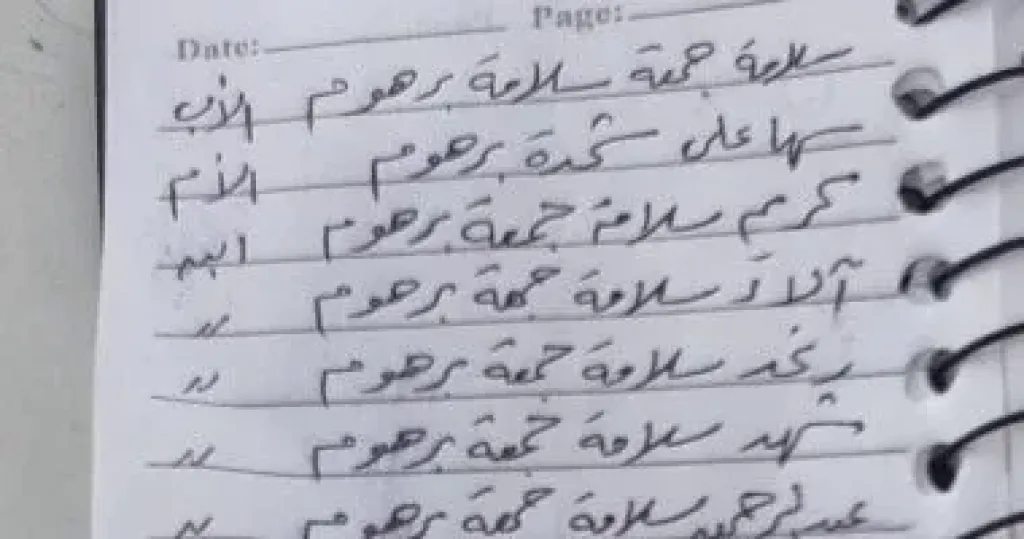 Date: Page:
سلامة جمعة سلامة برهوم الأب
سها على شحدة برهوم الأم
كريم سلامة جمعة برهوم
آلاء سلامة جمعة برهوم 〃
رغد سلامة جمعة برهوم 〃
شهد سلامة جمعة برهوم 〃
عبدالرحمن سلامة جمعة برهوم 〃